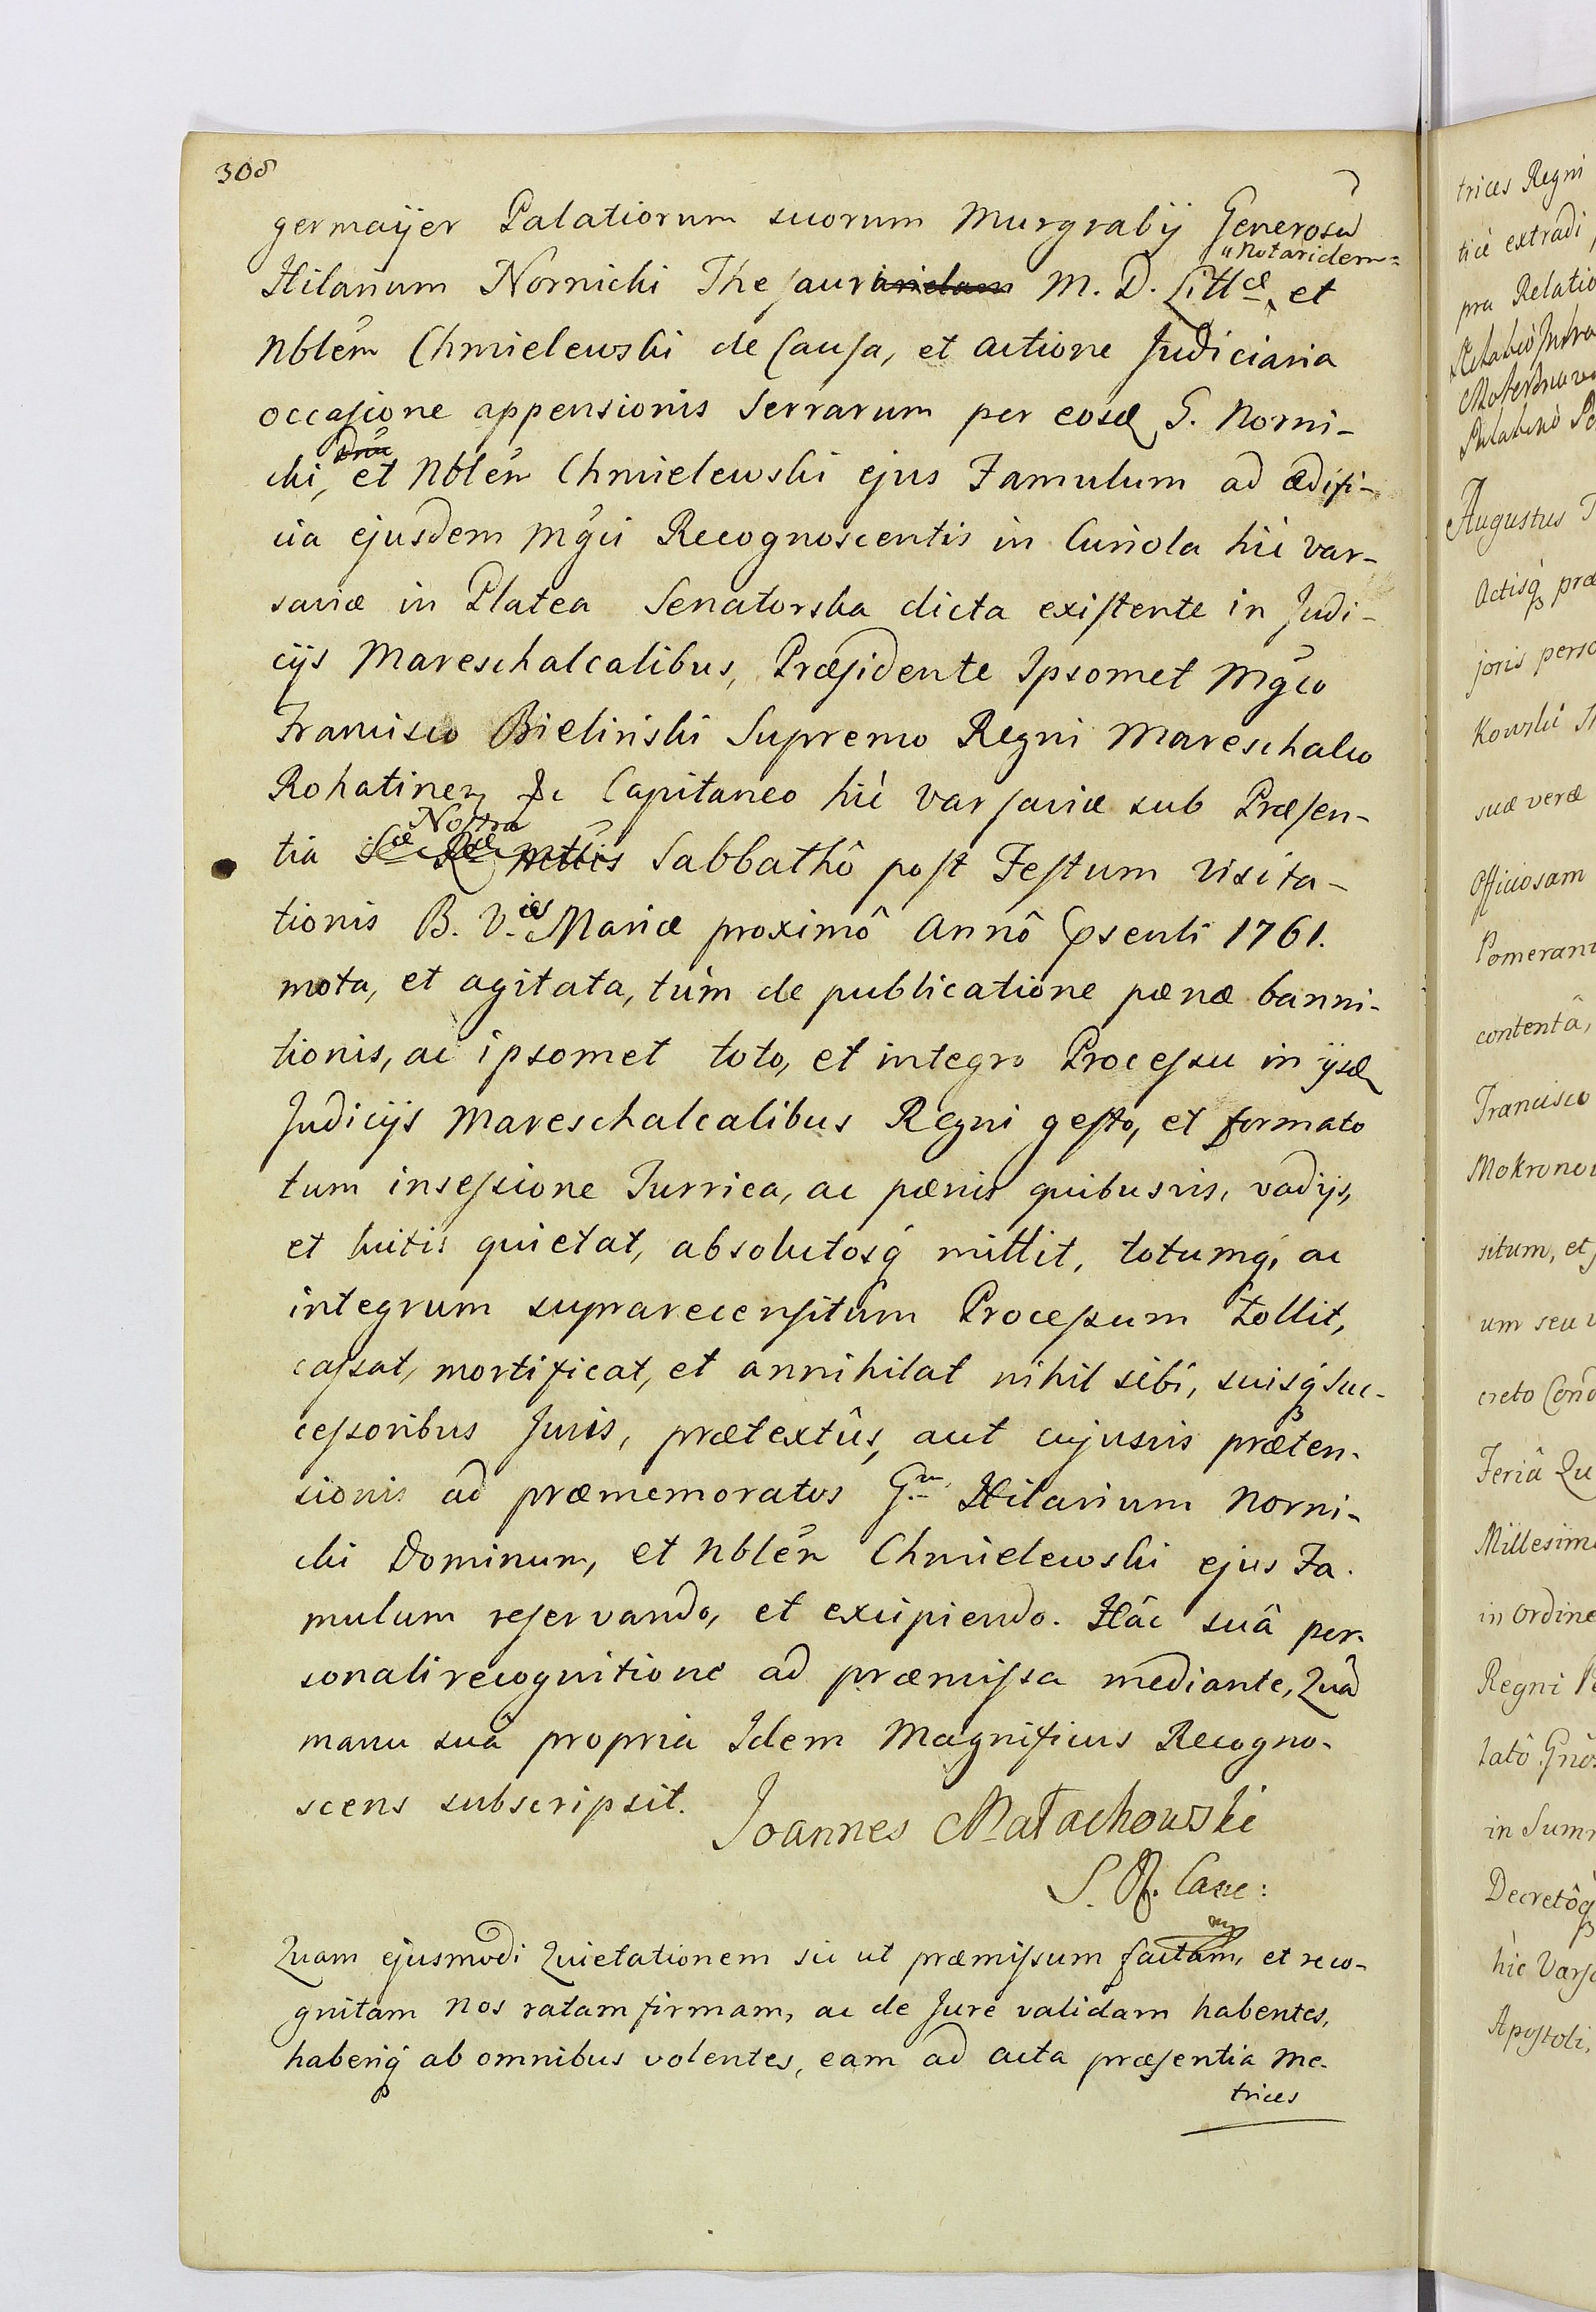 308
germaÿer Palatiorum suorum Murgrabij Generosū
"Notaridem=
Hilarium Nornicki Thesauri M. D. Littæ, et
Nblēm Chmielewski de Causa, et actione Judiciaria
occasione appensionis Serrarum per eosd, G. Norni-
cki, et Nblēm Chmielewski ejus Famulum ad ædifi-
cia ejusdem Mgci Recognoscentis in Curiola hic Var-
saviæ in Platea Senatorska dicta existente in Judi-
cijs Mareschalcalibus, Præsidente Ipsomet Mgco
Francisco Bielinski Supremo Regni Mareschalco
Rohatinen &c Capitaneo hic Varsaviæ sub Præsen-
Nostra
tia Sæ Ræ Mttis Sabbathô post Festum Visita-
tionis B. V.is Mariæ proximô Annô psenti 1761.
mota, et agitata, tùm de publicatione pænæ banni-
tionis, ac ipsomet toto, et integro Processu in ijsd
Judicijs Mareschalcalibus Regni gesto, et formato
tum insessione Turrica, ac pænis quibusvis, vadijs,
et luitis quietat, absolutosq mittit, totumq, ac
integrum suprarecensitum Processum tollit,
cassat, mortificat, et annihilat nihil sibi, suisq Suc-
cessoribus Juris, prætextûs, aut cujusvis præten-
sionis ad præmemoratos G.m Hilarium Norni-
cki Dominum, et Nblēm Chmielewski ejus Fa-
mulum reservando, et excipiendo. Hâc suâ per-
sonali recognitione ad præmissa mediante, Quā
manu suâ propria Idem Magnificus Recogno-
scens subscripsit.
Joannes Małachowski
S. R. Canc:
Quam ejusmodi Quietationem sic ut præmissum factam, et reco-
gnitam Nos ratam firmam, ac de Jure validam habentes,
haberiq ab omnibus volentes, eam ad acta præsentia Me-
trices
trices Regni
tice extradi
pra Relatio
Augustus T
Actisq præ
joris perso
Kowski
suæ veræ
Officiosam
Pomerani
contentâ,
Francisco
Mokronow
situm, et
um seu
creto Cond
Feriâ Qu
Millesim
in Ordine
Regni
latô Gnos
in Sum
Decretôq
hic Varsa
Apostoli,